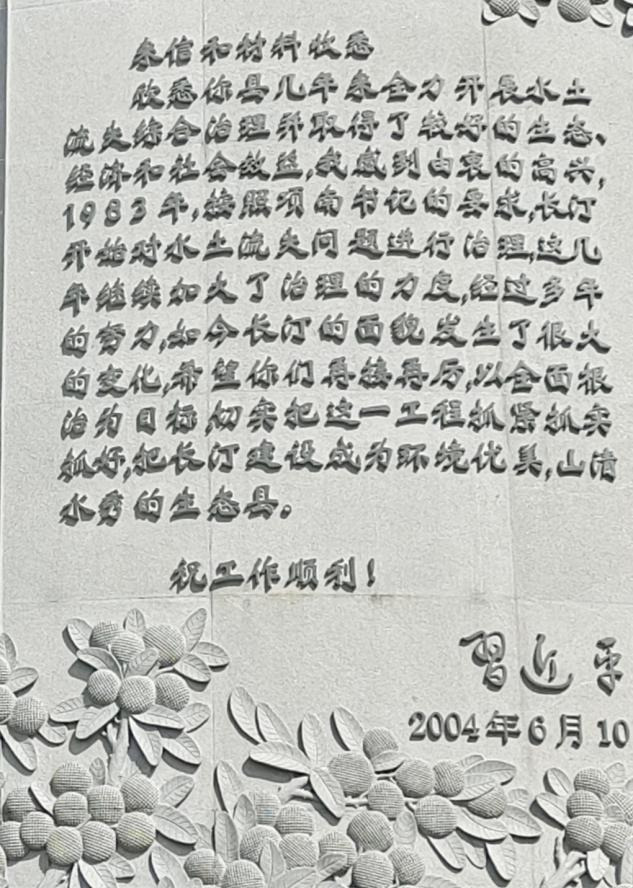 来信和材料收悉
欣悉你县几年来全力开展水土
流失综合治理并取得了较好的生态、
经济和社会效益,我感到由衷的高兴,
1983年,按照项南书记的要求,长汀
开始对水土流失问题进行治理,这几
年继续加大了治理的力度,经过多年
的努力,如今长汀的面貌发生了很大
的变化,希望你们再接再厉,以全面根
治为目标,切实把这一工程抓紧抓实
抓好,把长汀建设成为环境优美,山清
水秀的生态县。
祝工作顺利!
習近平
2004年6月10